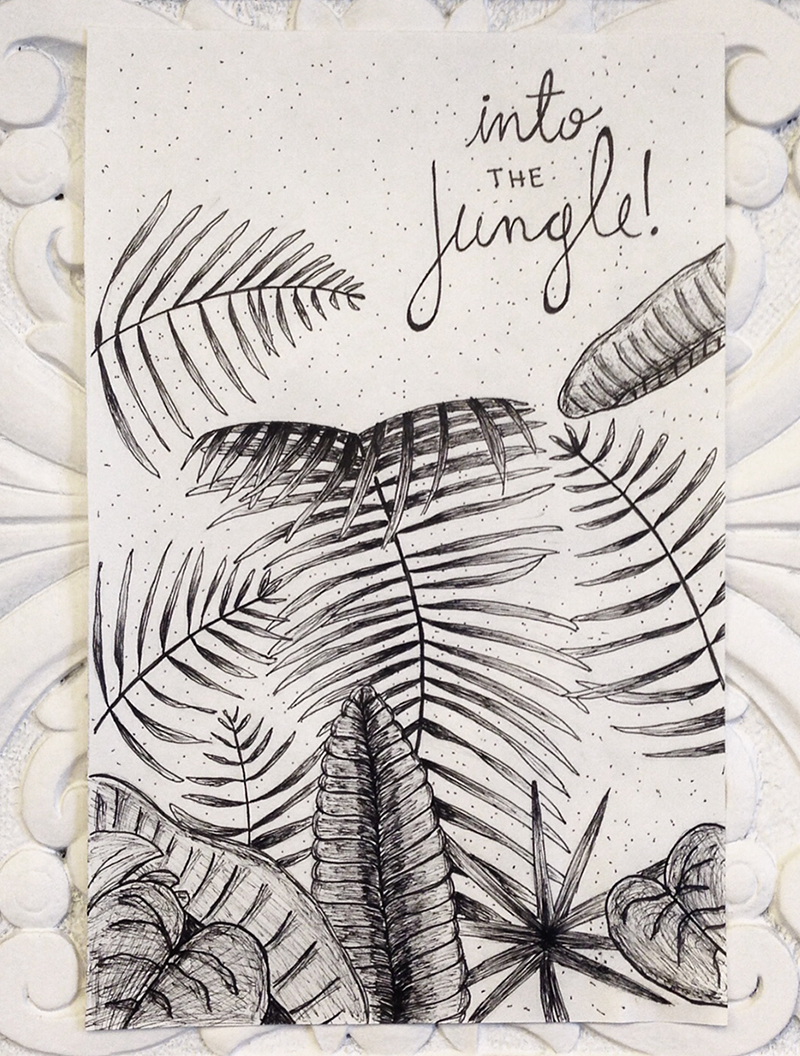 into
THE
Jungle!